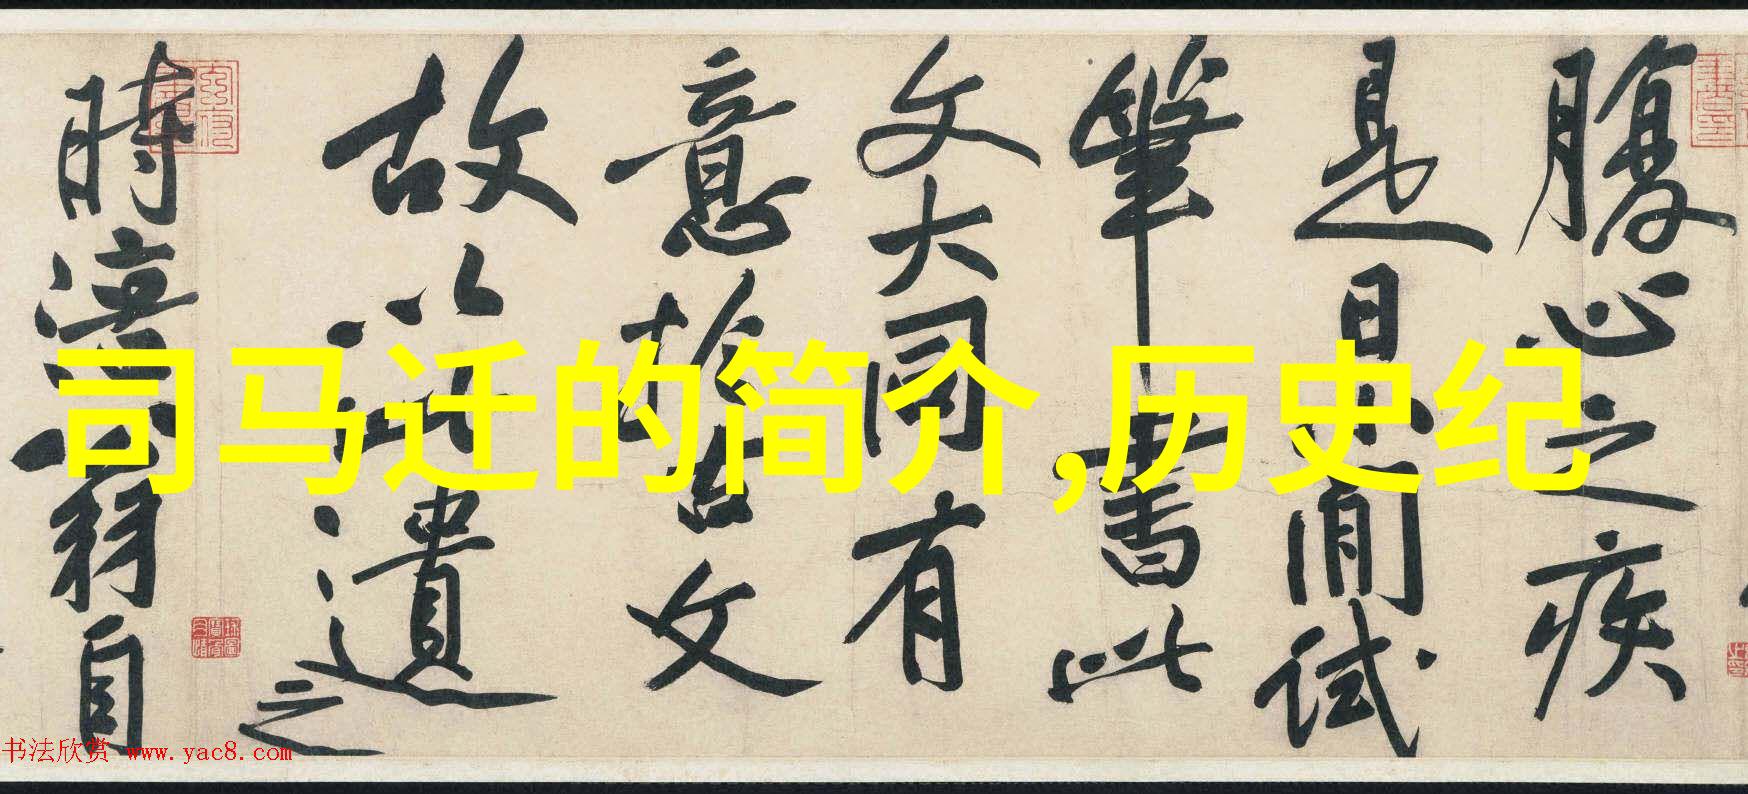 司马迁的简介,历史纪
腹心之疾
是日閒試
筆書此
文大同有
意於古文
故以此遺
之
時涪翁自
书法欣赏 www.yac8.com